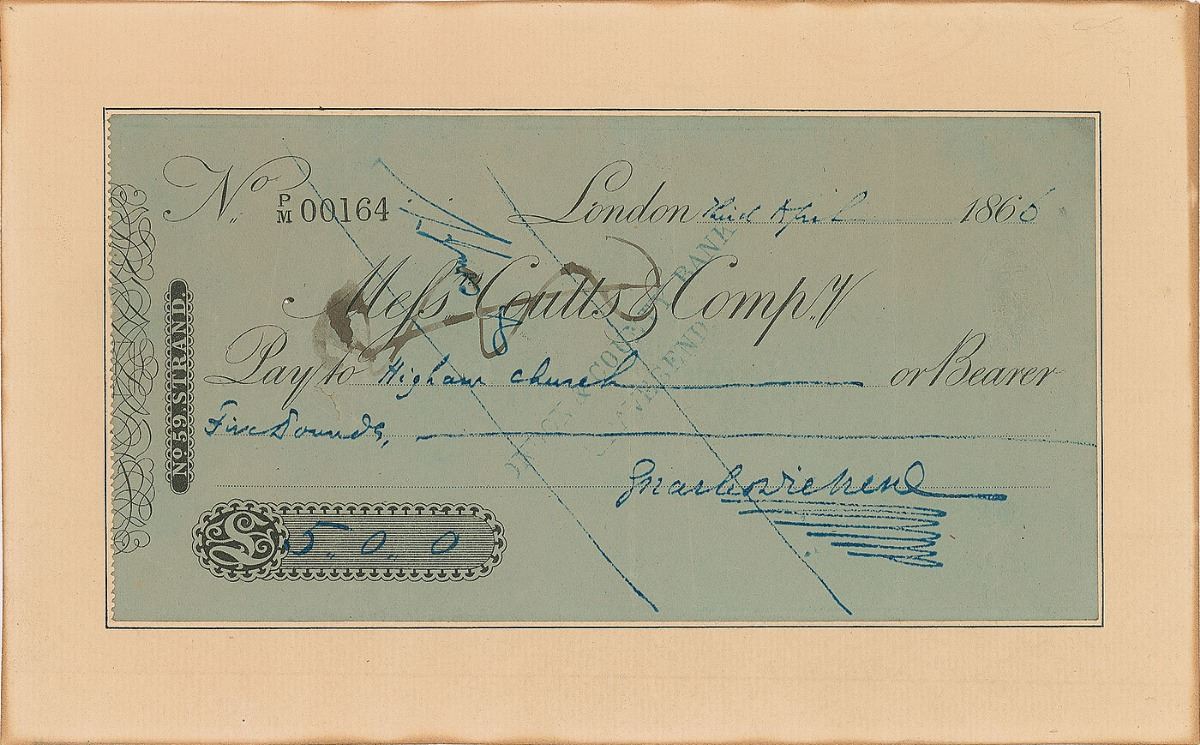 No. P/M 00164 London Third April 1866
Messrs Coutts & Compy.
Pay to Higham Church or Bearer
Five Pounds,
Charles Dickens
£ 5. 0. 0
No. 59. STRAND.
COUNTY BANK
GRAVESEND